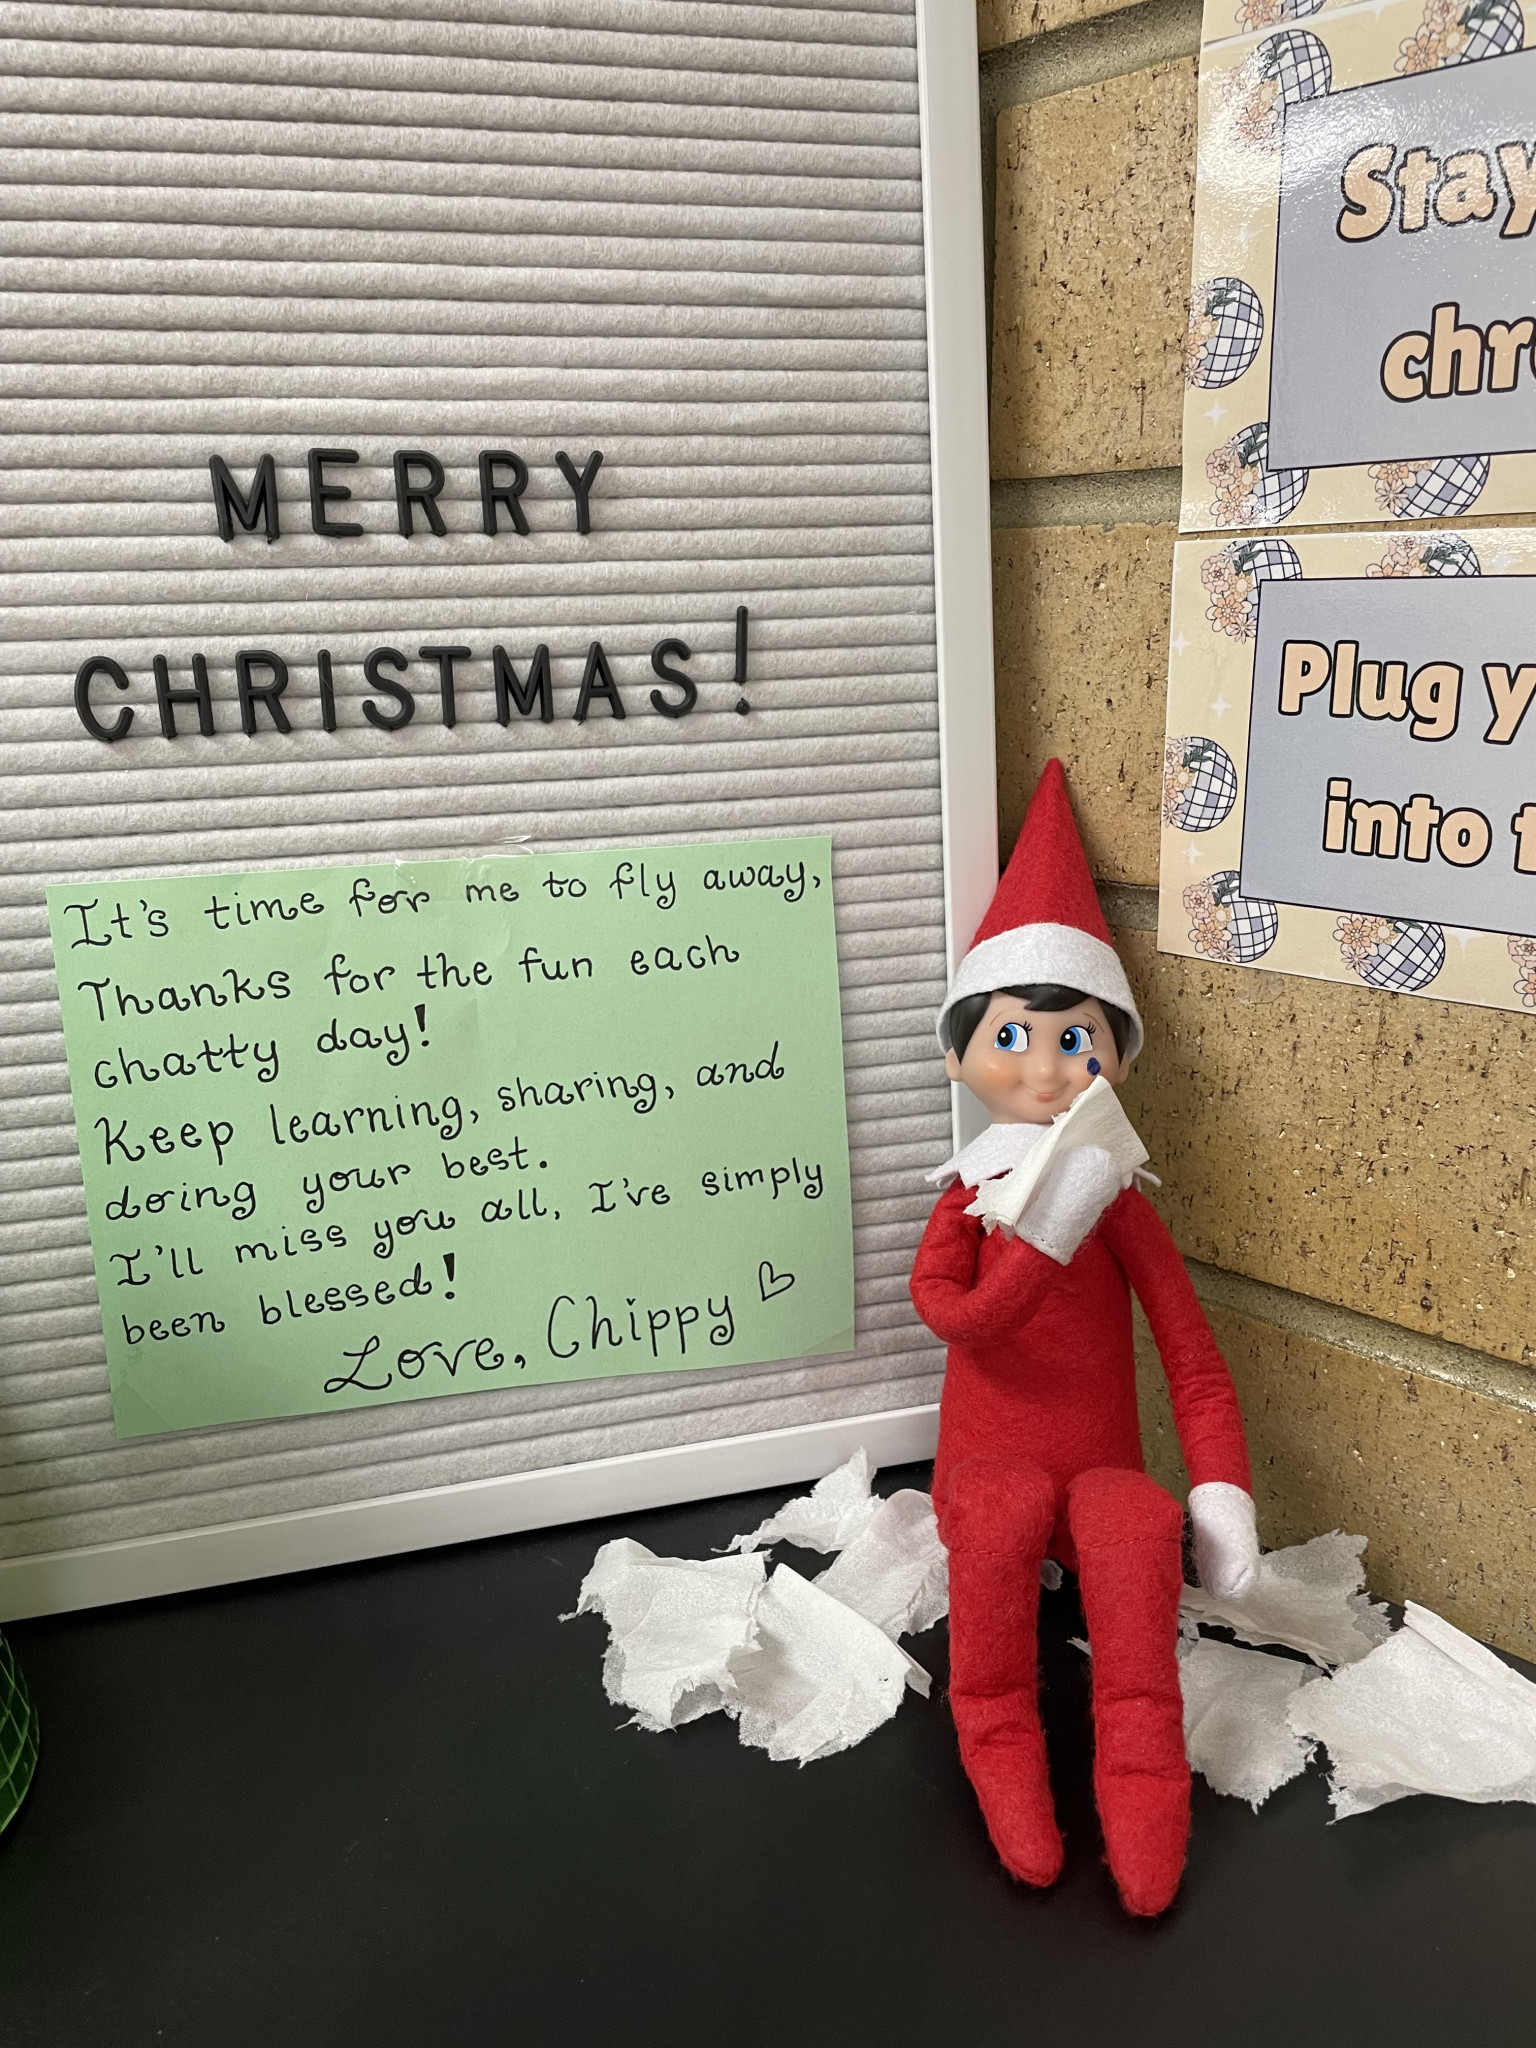 MERRY
CHRISTMAS!
It's time for me to fly away,
Thanks for the fun each
chatty day!
Keep learning, sharing, and
doing your best.
I'll miss you all, I've simply
been blessed!
Love, Chippy
Stay
chr
Plug y
into t